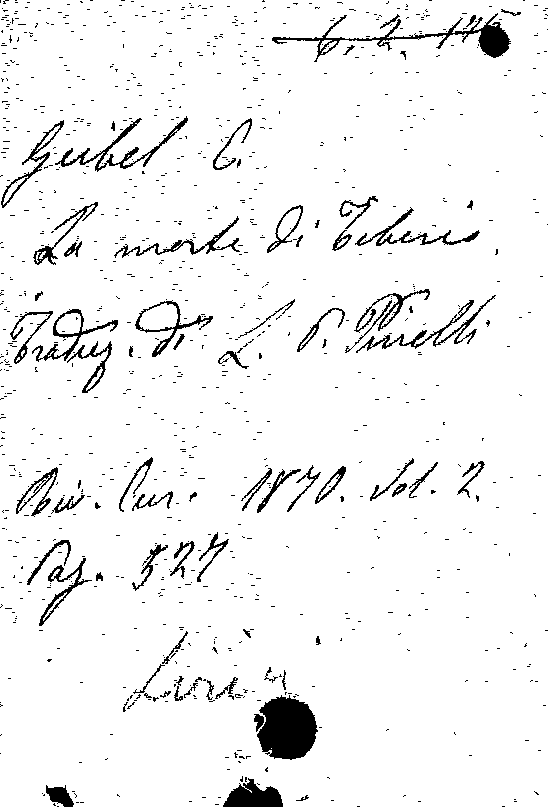 6. 2. 175
Geibel E.
La morte di Tiberio.
Traduz. di L. P. Pinelli
Riv. Eur. 1870. Vol. 2.
Pag. 527